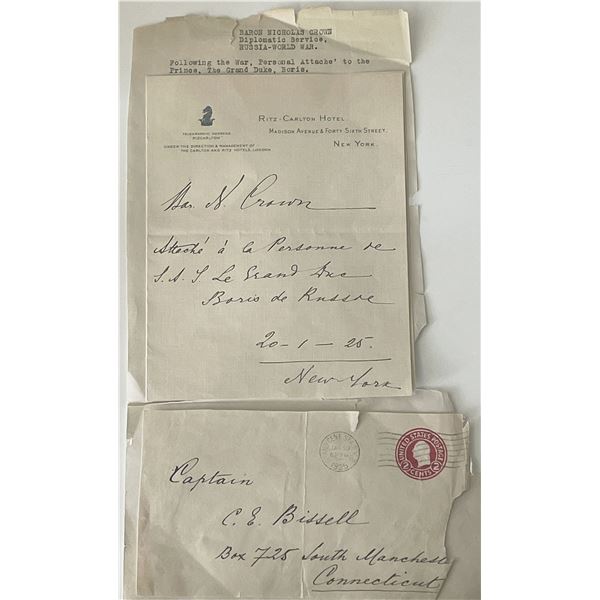 BARON NICHOLAS CROWN
Diplomatic Service,
RUSSIA-WORLD WAR.
Following the War, Personal Attache' to the
Prince, The Grand Duke, Boris.
RITZ-CARLTON HOTEL
MADISON AVENUE & FORTY SIXTH STREET,
NEW YORK.
TELEGRAPHIC ADDRESS
UNDER THE DIRECTION & MANAGEMENT OF
THE CARLTON AND RITZ HOTELS, LONDON
Bar. N. Crown
Attaché à la Personne de
S. A. I. Le Grand Duc
Boris de Russie
20-1-25.
New-York
1925
UNITED STATES POSTAGE
2 CENTS 2
Captain
C. E. Bissell
Box 725 South Manchester
Connecticut